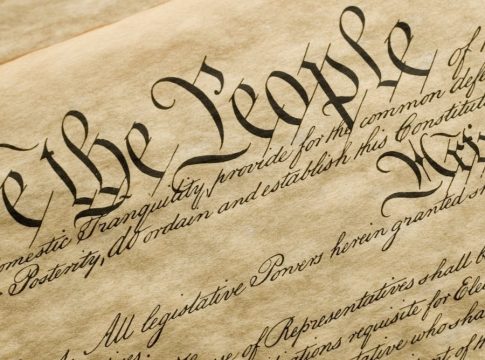 e the People of
omestic Tranquility, provide for the common defe
Posterity, do ordain and establish this Constitut
Artic
All legislative Powers herein granted s
se of Representatives shall b
ations requisite for Elec
tative who sha